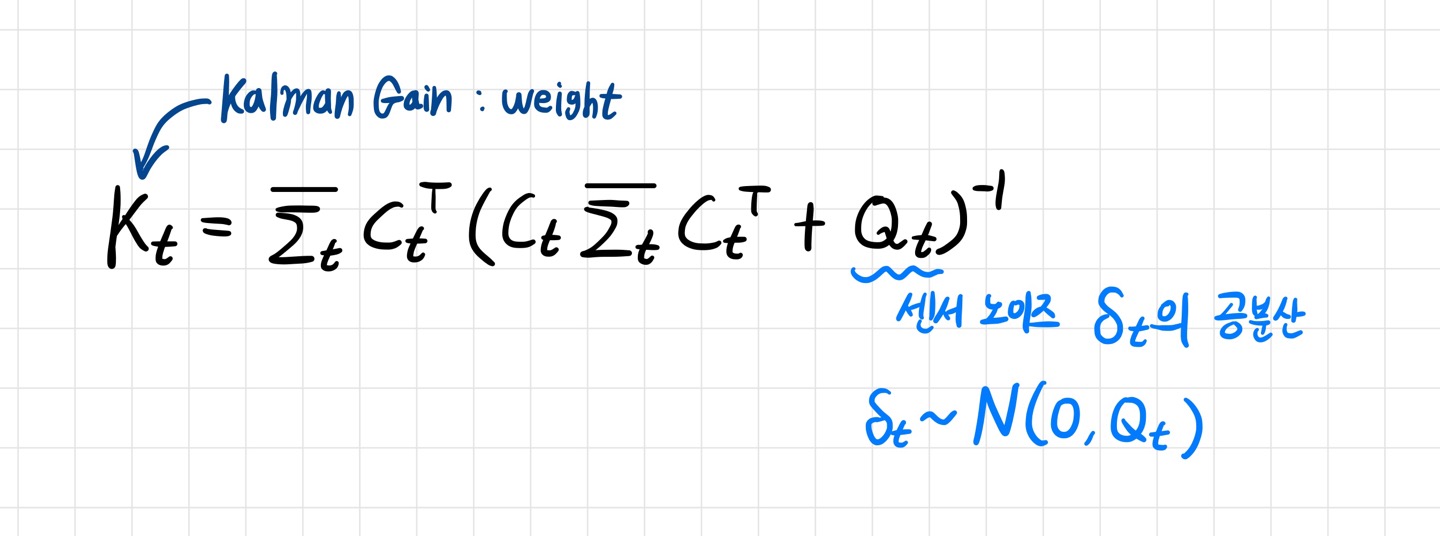 Kalman Gain : weight
K_t = \overline{Σ}_t C_t^T (C_t \overline{Σ}_t C_t^T + Q_t)^{-1}
센서 노이즈 δ_t의 공분산
δ_t ~ N(0, Q_t)